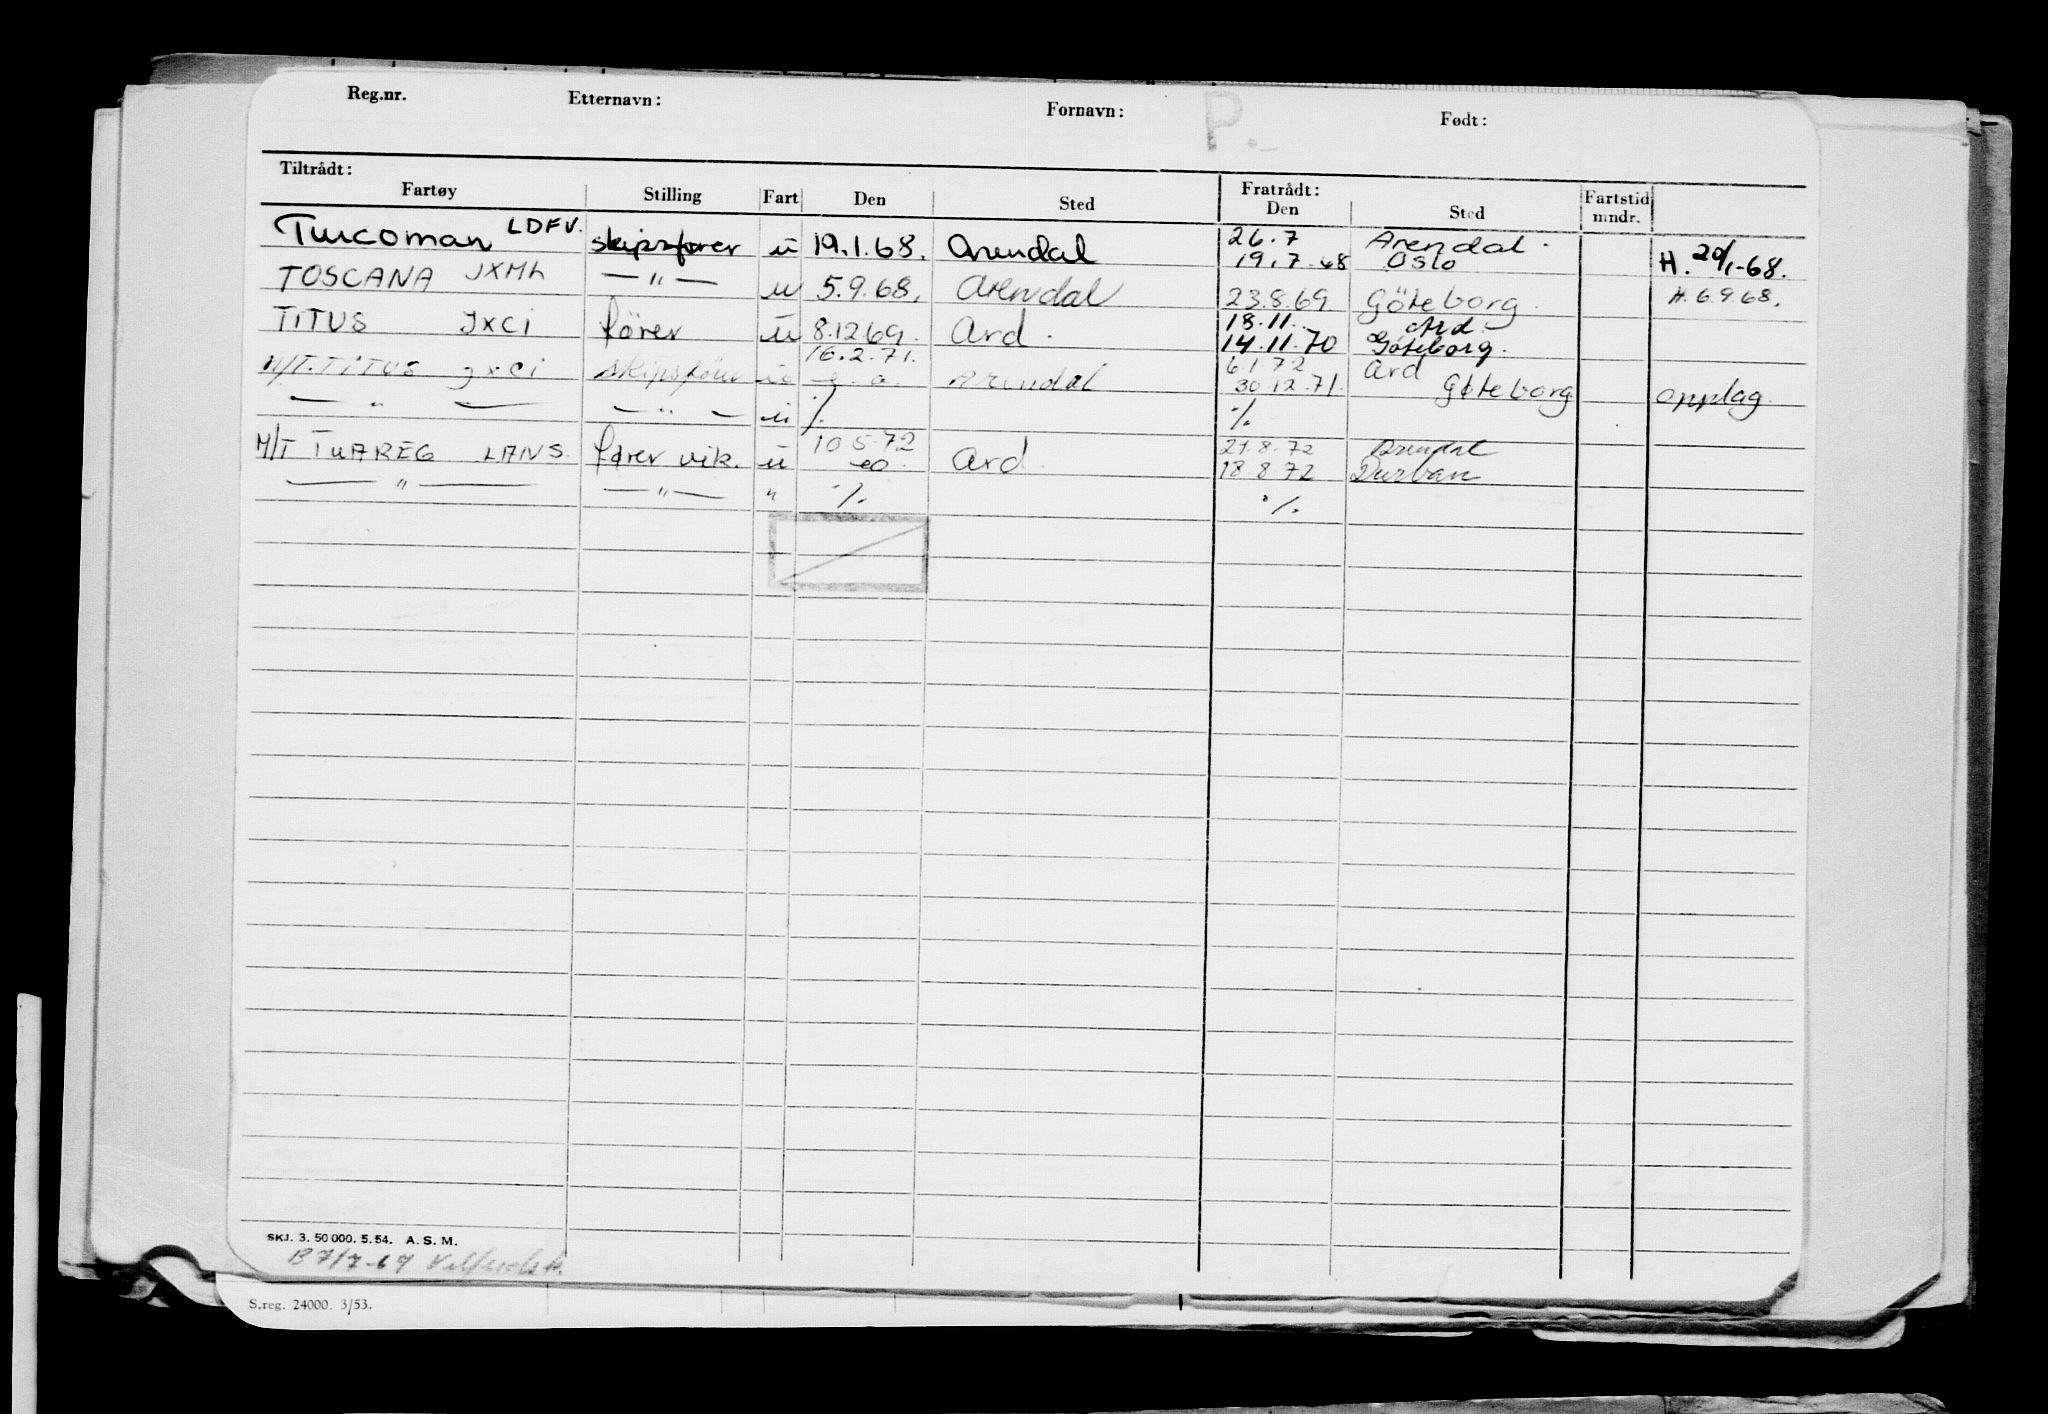 Reg.nr. Etternavn: Fornavn: P. Født:
Tiltrådt: Fratrådt:
Fartøy Stilling Fart Den Sted Den Sted Fartstid mndr.
26.7 Arendal.
Turcoman LDFV. skipsfører u 19.1.68. Arendal 19.7.68 Oslo H. 20/1-68.
TOSCANA JXML — " — u 5.9.68. Arendal 23.8.69 Göteborg. H. 6.9.68.
18.11. Ard.
TITUS JXCI förer u 8.12.69. Ard. 14.11.70 Göteborg.
16.2.71. 6.1.72 Ard
M/T. TITUS JXCI skipsförer u Arendal 30.12.71. Gøteborg opplag.
— " — — " — u ./. ./.
10.5.72 21.8.72 Arendal
M/T TUAREG LANS. fører vik. u Ard. 18.8.72 Durban
— " — — " — " ./. ./.
SKJ. 3. 50 000. 5.54. A. S. M.
B 7/7-67
S.reg. 24000. 3/53.